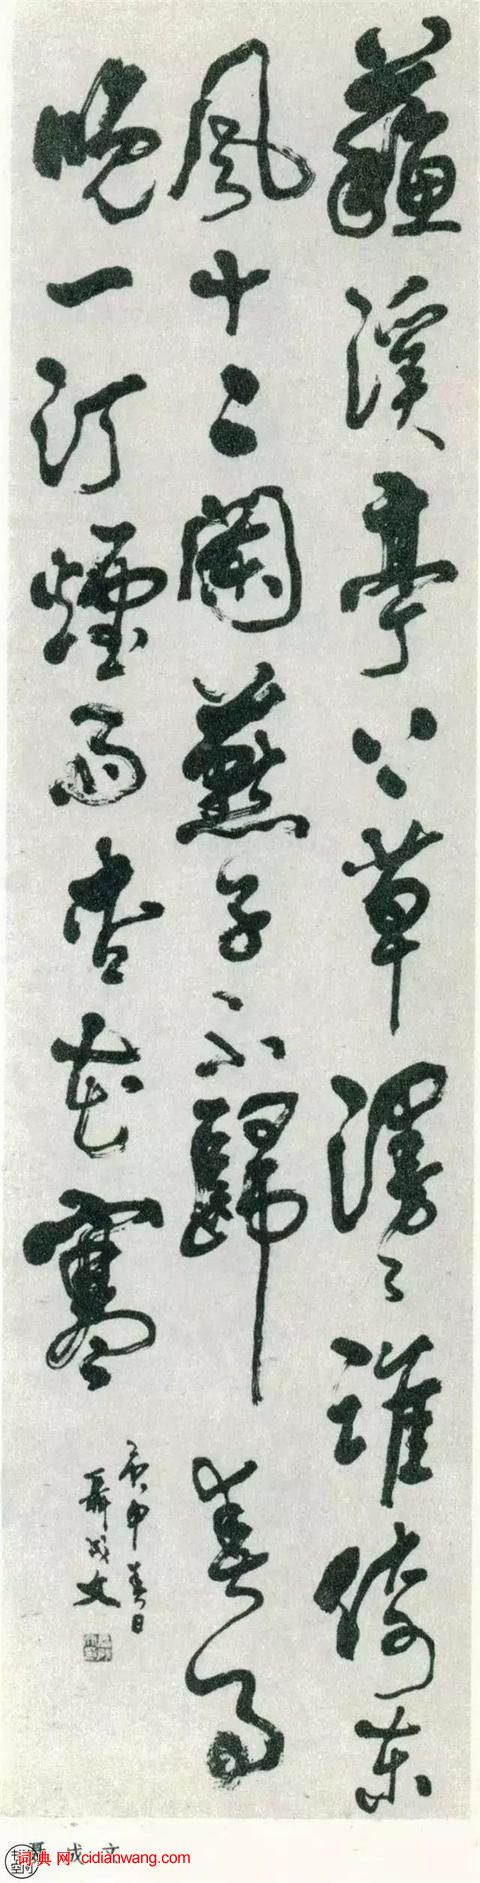 蘇溪亭上草漫々誰倚東
風十二闌燕子不歸春事
晚一汀煙雨杏花寒
庚申春日
聶成文
聶成文
词典网:cidianwang.com